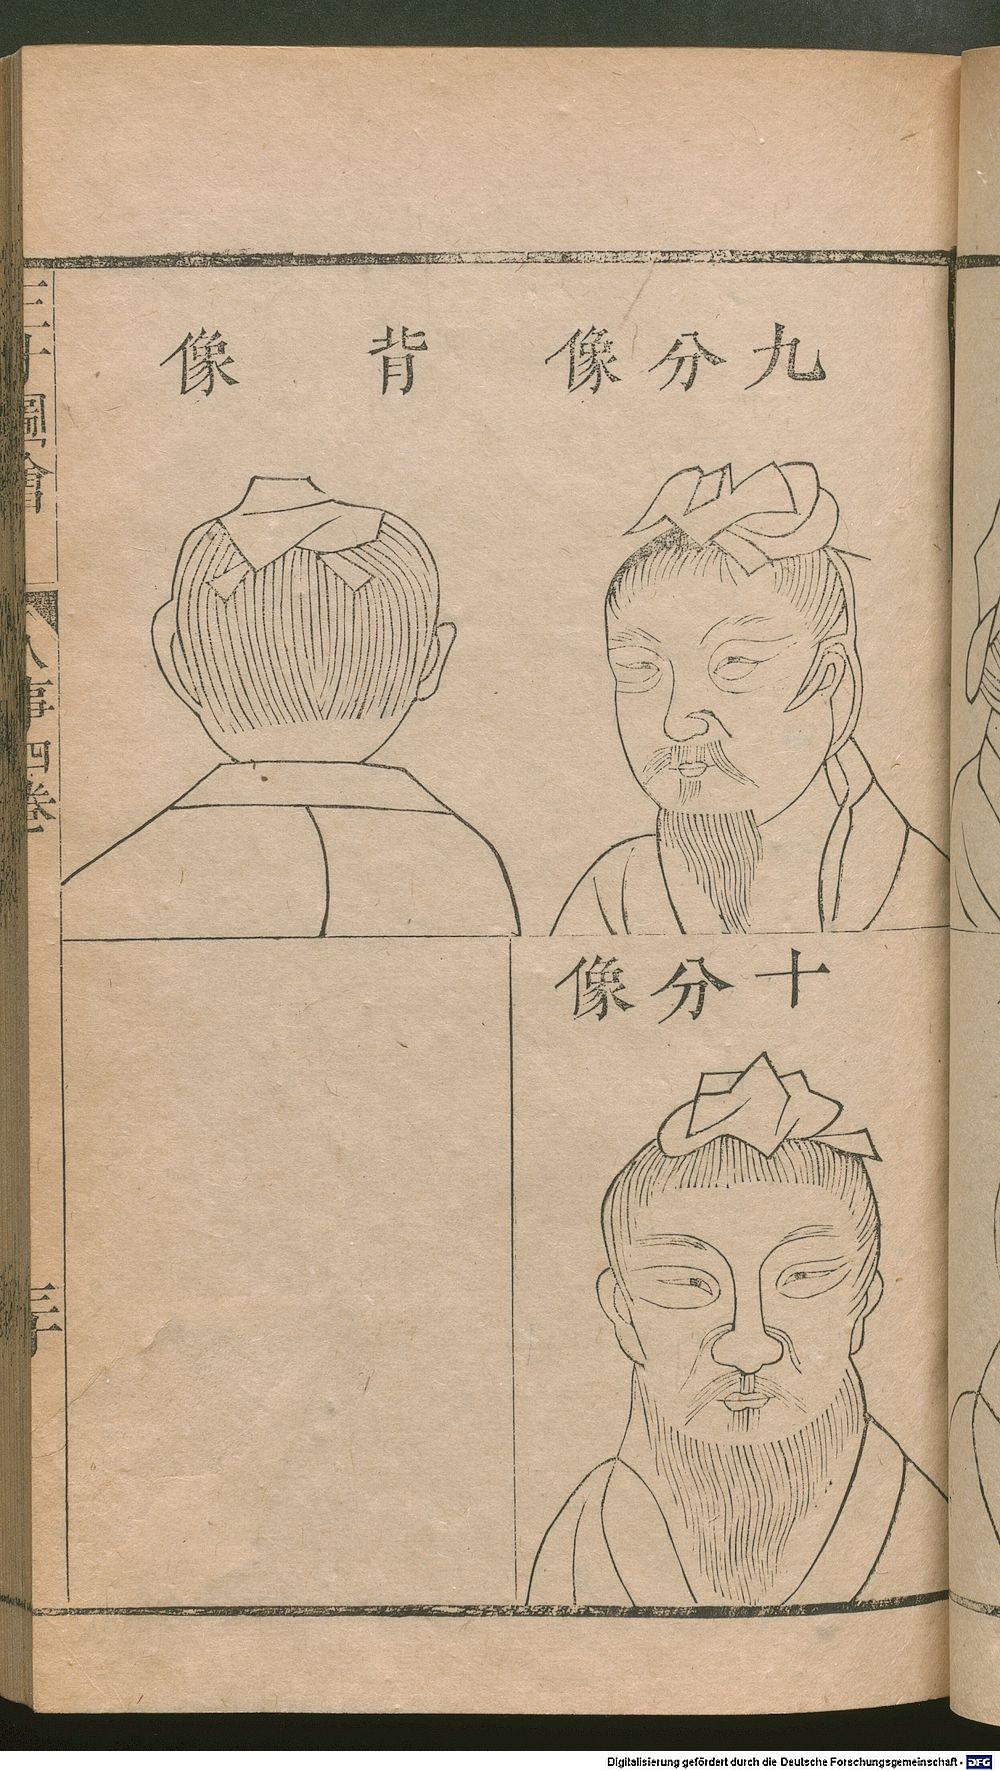 九分像
背像
十分像
三才圖會
人事四卷
三十
Digitalisierung gefördert durch die Deutsche Forschungsgemeinschaft - DFG